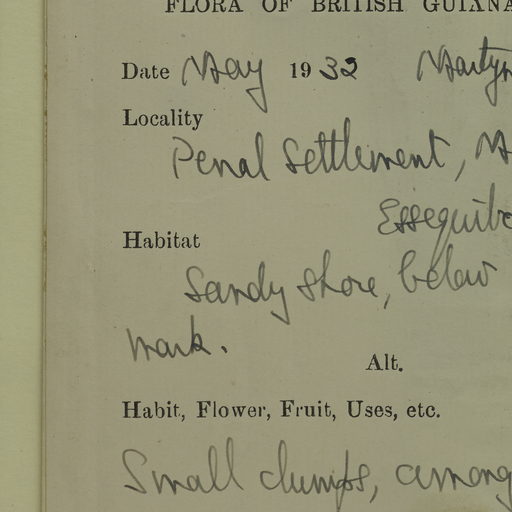 FLORA OF BRITISH GUIANA
Date May 1932 Martyn
Locality
Penal Settlement,
Essequibo
Habitat
Sandy shore, below
mark.
Alt.
Habit, Flower, Fruit, Uses, etc.
Small clumps, among